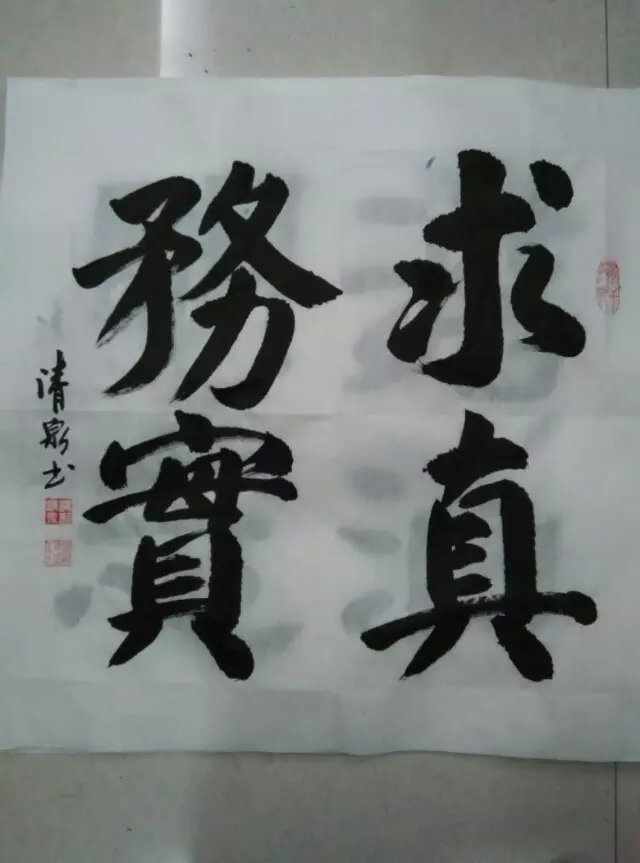 求真
務實
清泉书